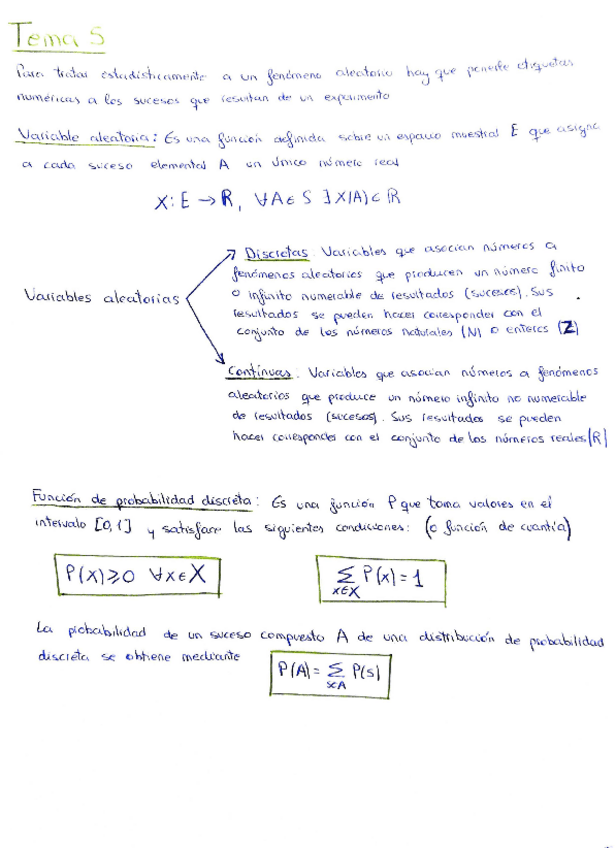 Tema 5
Para tratar estadísticamente a un fenómeno aleatorio hay que ponerle etiquetas
numéricas a los sucesos que resultan de un experimento
Variable aleatoria: Es una función definida sobre un espacio muestral E que asigna
a cada suceso elemental A un único número real
X: E → R, ∀A ∈ S ∃ X(A) ⊂ R
Variables aleatorias
Discretas: Variables que asocian números a
fenómenos aleatorios que producen un número finito
o infinito numerable de resultados (sucesos). Sus
resultados se pueden hacer corresponder con el
conjunto de los números naturales (N) o enteros (Z)
Continuas: Variables que asocian números a fenómenos
aleatorios que produce un número infinito no numerable
de resultados (sucesos). Sus resultados se pueden
hacer corresponder con el conjunto de los números reales (R)
Función de probabilidad discreta: Es una función P que toma valores en el
intervalo [0,1] y satisface las siguientes condiciones: (o función de cuantía)
P(x) ≥ 0 ∀x ∈ X
∑ P(x) = 1
x∈X
La probabilidad de un suceso compuesto A de una distribución de probabilidad
discreta se obtiene mediante
P(A) = ∑ P(s)
s∈A